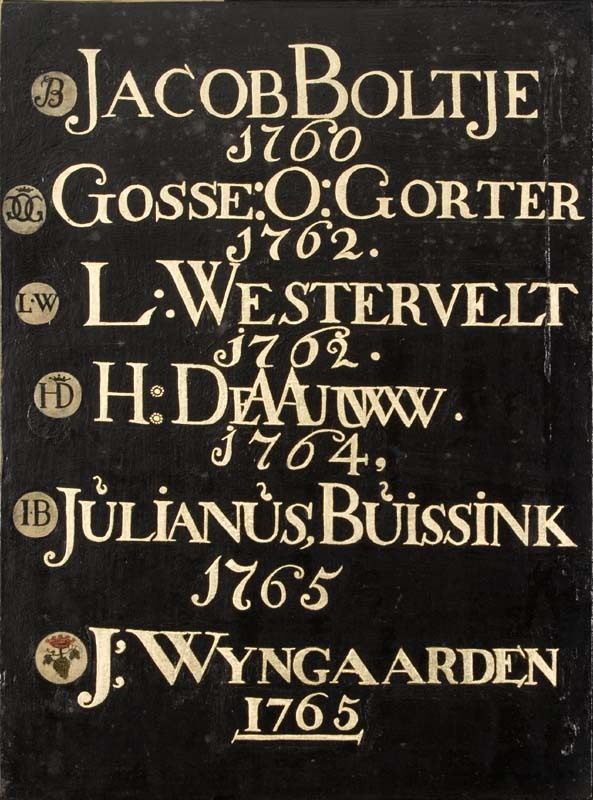 JB JACOB BOLTJE
1760
GOG GOSSE:O:GORTER
1762.
L·W L:WESTERVELT
1762.
HD H:
1764,
I·B JULIANUS, BUISSINK
1765
J: WYNGAARDEN
1765